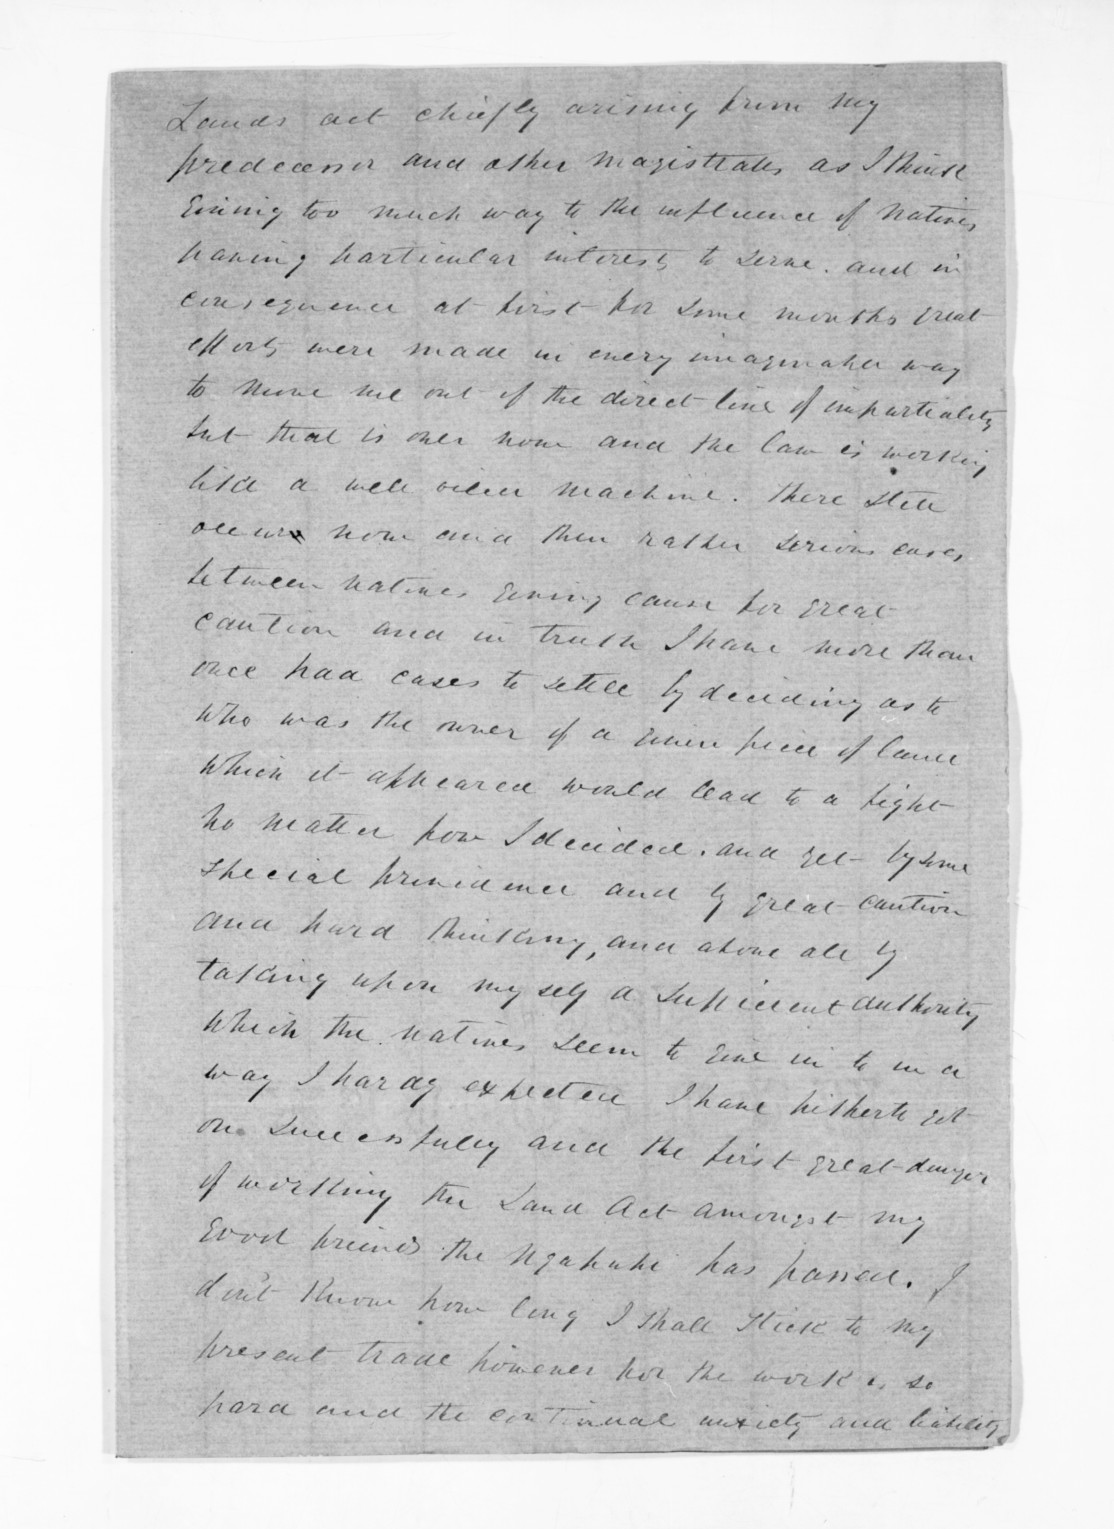 Lands act chiefly arising from my
predecessor and other magistrates as I think
Giving too much way to the influence of Natives
having particular interests to serve. and in
consequence at first for some months great
efforts were made in every imaginable way
to move me out of the direct line of impartiality
but that is over now and the law is working
like a well oiled machine. there still
occurs now and then rather serious cases
between natives giving cause for great
caution and in truth I have more than
once had cases to settle by deciding as to
who was the owner of a given piece of land
which it appeared would lead to a fight
no matter how I decided. and yet by some
special providence and by great caution
and hard thinking, and above all by
taking upon myself a sufficient authority
which the natives seem to give in to in a
way I hardly expected I have hitherto got
on successfully and the first great danger
of working the Land Act amongst my
Good friends the Ngapuhi has passed. I
don't know how long I shall stick to my
present trade however for the work is so
hard and the continual anxiety and liability